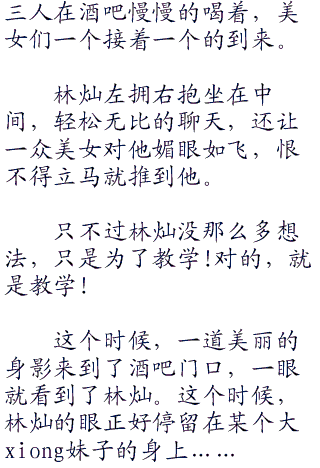 三人在酒吧慢慢的喝着，美
女们一个接着一个的到来。
林灿左拥右抱坐在中
间，轻松无比的聊天，还让
一众美女对他媚眼如飞，恨
不得立马就推到他。
只不过林灿没那么多想
法，只是为了教学!对的，就
是教学!
这个时候，一道美丽的
身影来到了酒吧门口，一眼
就看到了林灿。这个时候，
林灿的眼正好停留在某个大
xiong妹子的身上……